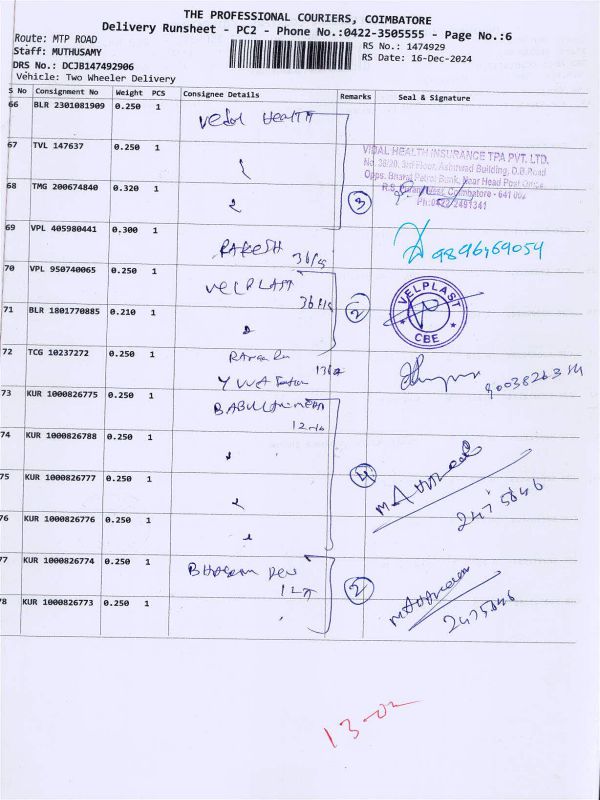 THE PROFESSIONAL COURIERS, COIMBATORE
Delivery Runsheet - PC2 - Phone No.:0422-3505555 - Page No.:6
Route: MTP ROAD
RS No.: 1474929
Staff: MUTHUSAMY
RS Date: 16-Dec-2024
DRS No.: DCJB147492906
Vehicle: Two Wheeler Delivery
S No Consignment No Weight PCS Consignee Details Remarks Seal & Signature
66 BLR 2301081909 0.250 1 Vedal Health
67 TVL 147637 0.250 1
VIDAL HEALTH INSURANCE TPA PVT. LTD.
No. 38/20, 3rd Floor, Ashirwad Building, D.B.Road
Opps. Bharat Petrol Bunk, Near Head Post Office
R.S. Puram West, Coimbatore - 641 002
Ph:0422-2491341
68 TMG 200674840 0.320 1 3
69 VPL 405980441 0.300 1 RAKESH
70 VPL 950740065 0.250 1 VELPLAST
2
VELPLAST
CBE
71 BLR 1801770885 0.210 1
72 TCG 10237272 0.250 1
YUVA
73 KUR 1000826775 0.250 1
74 KUR 1000826788 0.250 1
4
75 KUR 1000826777 0.250 1
2475846
76 KUR 1000826776 0.250 1
77 KUR 1000826774 0.250 1
2
78 KUR 1000826773 0.250 1
2475846
13-02